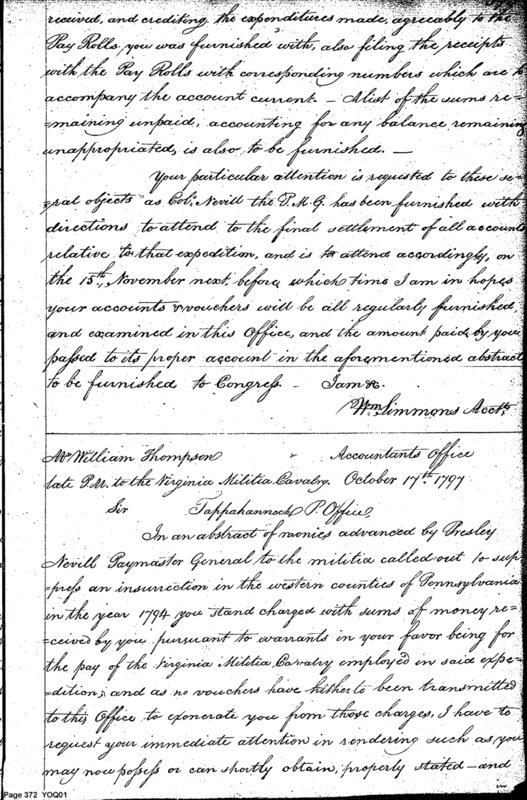 received, and crediting the expenditures made, agreeably to the
Pay Rolls, you was furnished with, also filing the receipts
with the Pay Rolls with corresponding numbers which are to
accompany the account current. — A list of the sums re-
=maining unpaid, accounting for any balance remaining
unappropriated, is also to be furnished. —
Your particular attention is requested to these se-
=ral objects as Col. Nevill the P.M.G. has been furnished with
directions to attend to the final settlement of all accounts
relative to that expedition, and is to attend accordingly, on
the 15th November next, before which time I am in hopes
your accounts & vouchers will be all regularly furnished,
and examined in this Office, and the amount paid by you
passed to its proper account in the aforementioned abstract
to be furnished to Congress. — I am &c.
Wm. Simmons Acctt.
Mr. William Thompson Accountants Office
late P.M. to the Virginia Militia Cavalry. October 17th 1797
Sir Tappahannock P. Office
In an abstract of monies advanced by Presley
Nevill Paymaster General to the militia called out to sup-
=press an insurrection in the western counties of Pennsylvania
in the year 1794 you stand charged with sums of money re-
=ceived by you pursuant to warrants in your favor being for
the pay of the Virginia Militia Cavalry employed in said expe-
=dition; and as no vouchers have hitherto been transmitted
to this Office to exonerate you from those charges, I have to
request your immediate attention in rendering such as you
may now possess or can shortly obtain, properly stated — and
in
Page 372 YOQ01